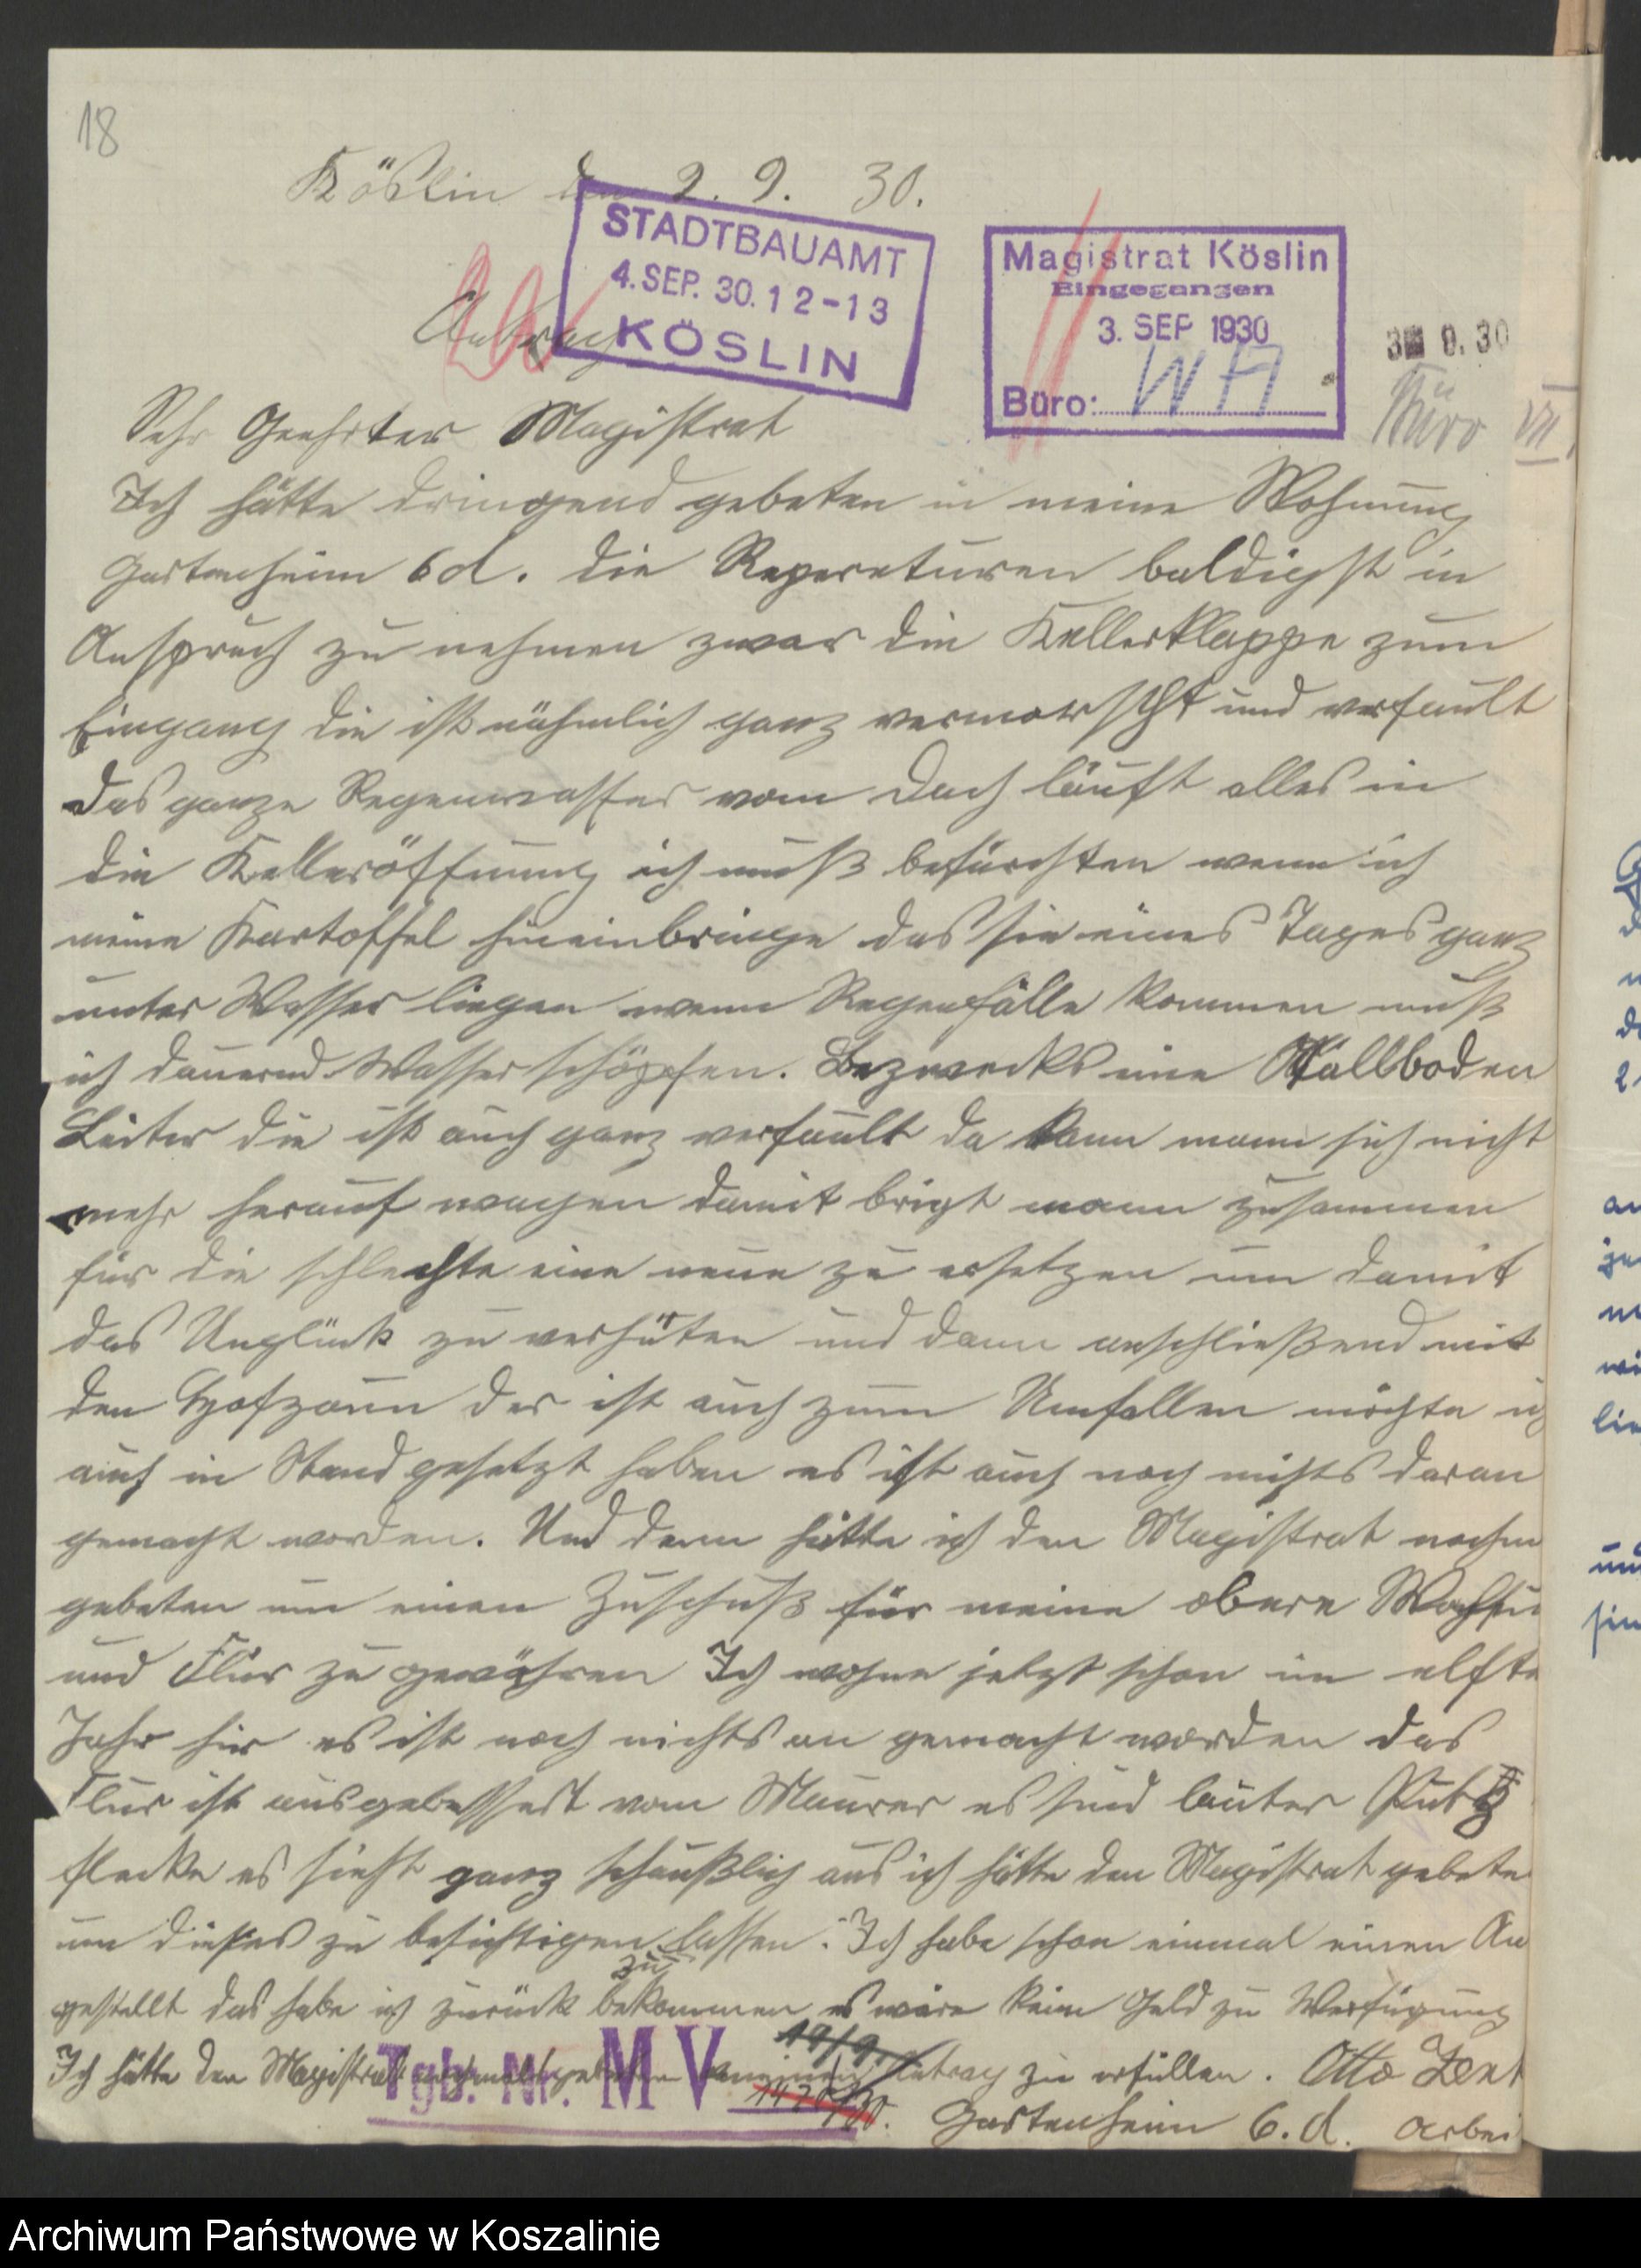 18
Köslin den 2. 9. 30.
STADTBAUAMT
4. SEP. 30. 12-13
KÖSLIN
Magistrat Köslin
Eingegangen
3. SEP 1930
Büro: WH
9. 30
Büro VII
Antrag
Sehr Geehrter Magistrat
Ich hätte dringend gebeten in meine Wohnung
Gartenheim 6 d. die Reperaturen baldigst in
Anspruch zu nehmen zwar die Kellerklappe zum
Eingang die ist nähmlich ganz vermorscht und verfault
das ganze Regenwasser vom Dach läuft alles in
die Kelleröffnung ich muß befürchten wenn ich
meine Kartoffel hineinbringe das sie eines Tages ganz
unter Wasser liegen wenn Regenfälle kommen muß
ich dauernd Wasser schöpfen. Bezwecks eine Stallboden
Leiter die ist auch ganz verfault da kann mann sich nicht
mehr herauf wagen damit brigt mann zusammen
für die schlechte eine neue zu ersetzen um damit
das Unglück zu verhüten und dann anschließend mit
den Hofzaun der ist auch zum Umfallen möchte ich
auch in Stand gesetzt haben es ist auch noch nichts daran
gemacht worden. Und dann hätte ich den Magistrat nochm
gebeten um einen Zuschuß für meine obere
und Flur zu gewähren Ich wohne jetzt schon im elfte
Jahr hir es ist noch nichts an gemacht worden das
Flur ist ausgebessert vom Maurer es sind lauter Putz
flecke es sieht ganz scheußlich aus ich hätte den Magistrat gebete
um dieses zu besichtigen zu lassen. Ich habe schon einmal einen An
gestellt das habe ich zurück bekommen es wäre kein Geld zu Verfügung
Ich hätte den Magistrat nochmals gebeten meinen Antrag zu erfüllen. Otto Zent
Tgb. Nr. M V 19/9.
Gartenheim 6. d. Arbei
Archiwum Państwowe w Koszalinie